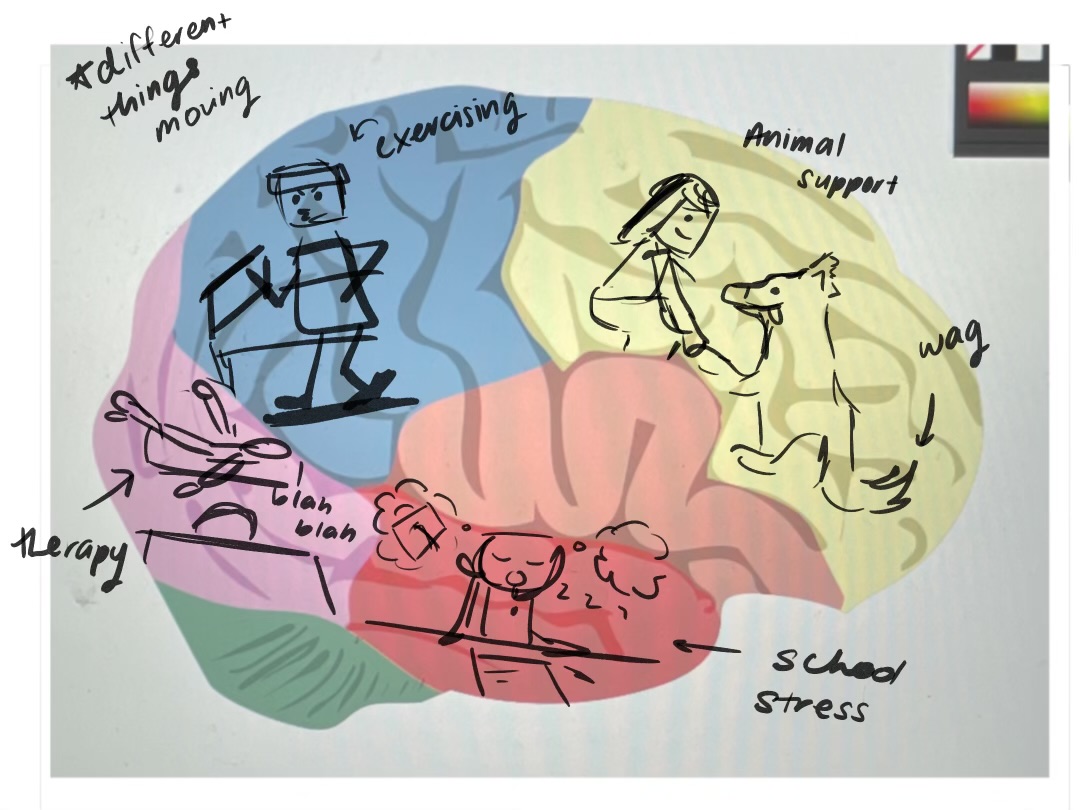 *different
things
moving
exercising
Animal
support
wag
blah
blah
therapy
z z z
school
stress